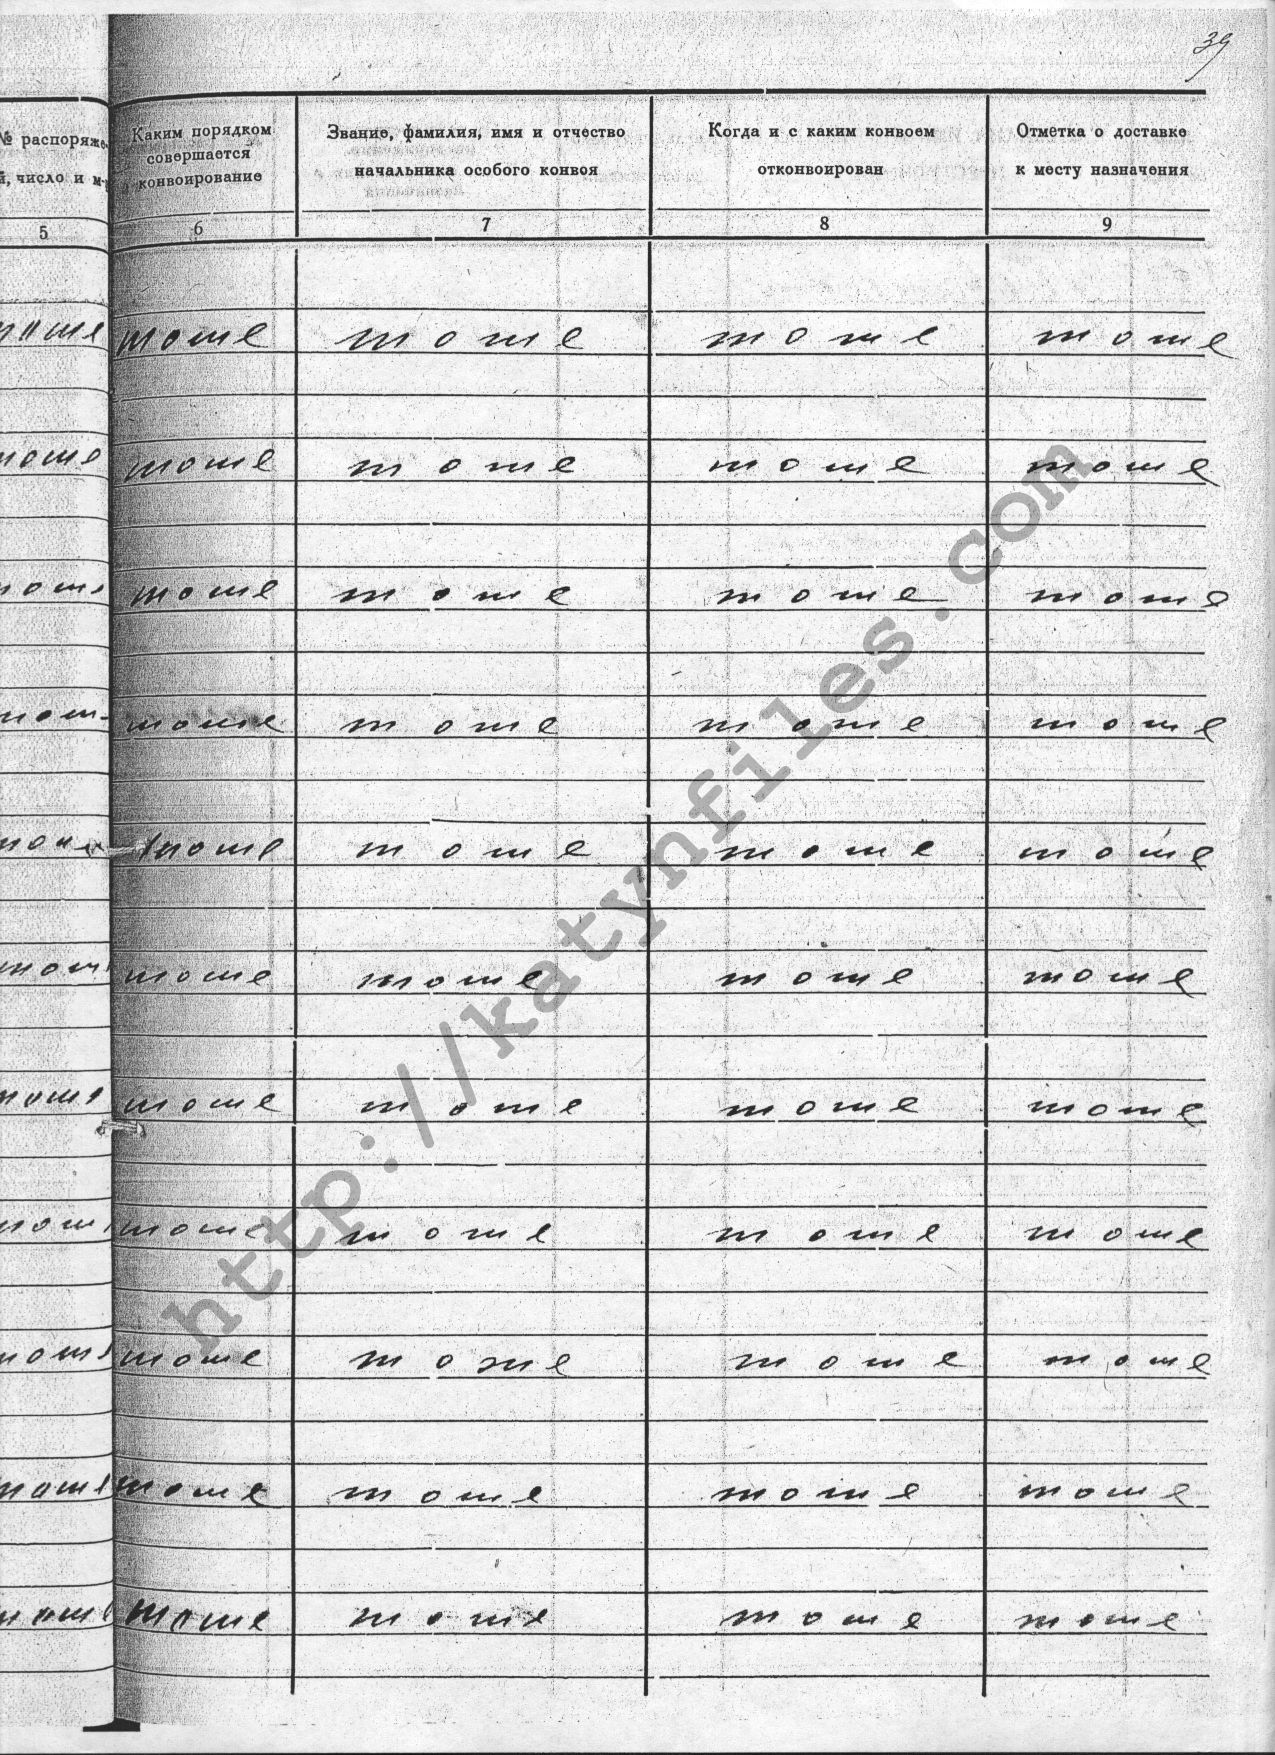 39
№ распоряже-
й, число и м-
Каким порядком
совершается
конвоирование
Звание, фамилия, имя и отчество
начальника особого конвоя
Когда и с каким конвоем
отконвоирован
Отметка о доставке
к месту назначения
5 6 7 8 9
тоже тоже тоже тоже тоже
тоже тоже тоже тоже тоже
тоже тоже тоже тоже тоже
тоже тоже тоже тоже тоже
тоже тоже тоже тоже тоже
тоже тоже тоже тоже тоже
тоже тоже тоже тоже тоже
тоже тоже тоже тоже тоже
тоже тоже тоже тоже тоже
тоже тоже тоже тоже тоже
тоже тоже тоже тоже тоже
http://katynfiles.com